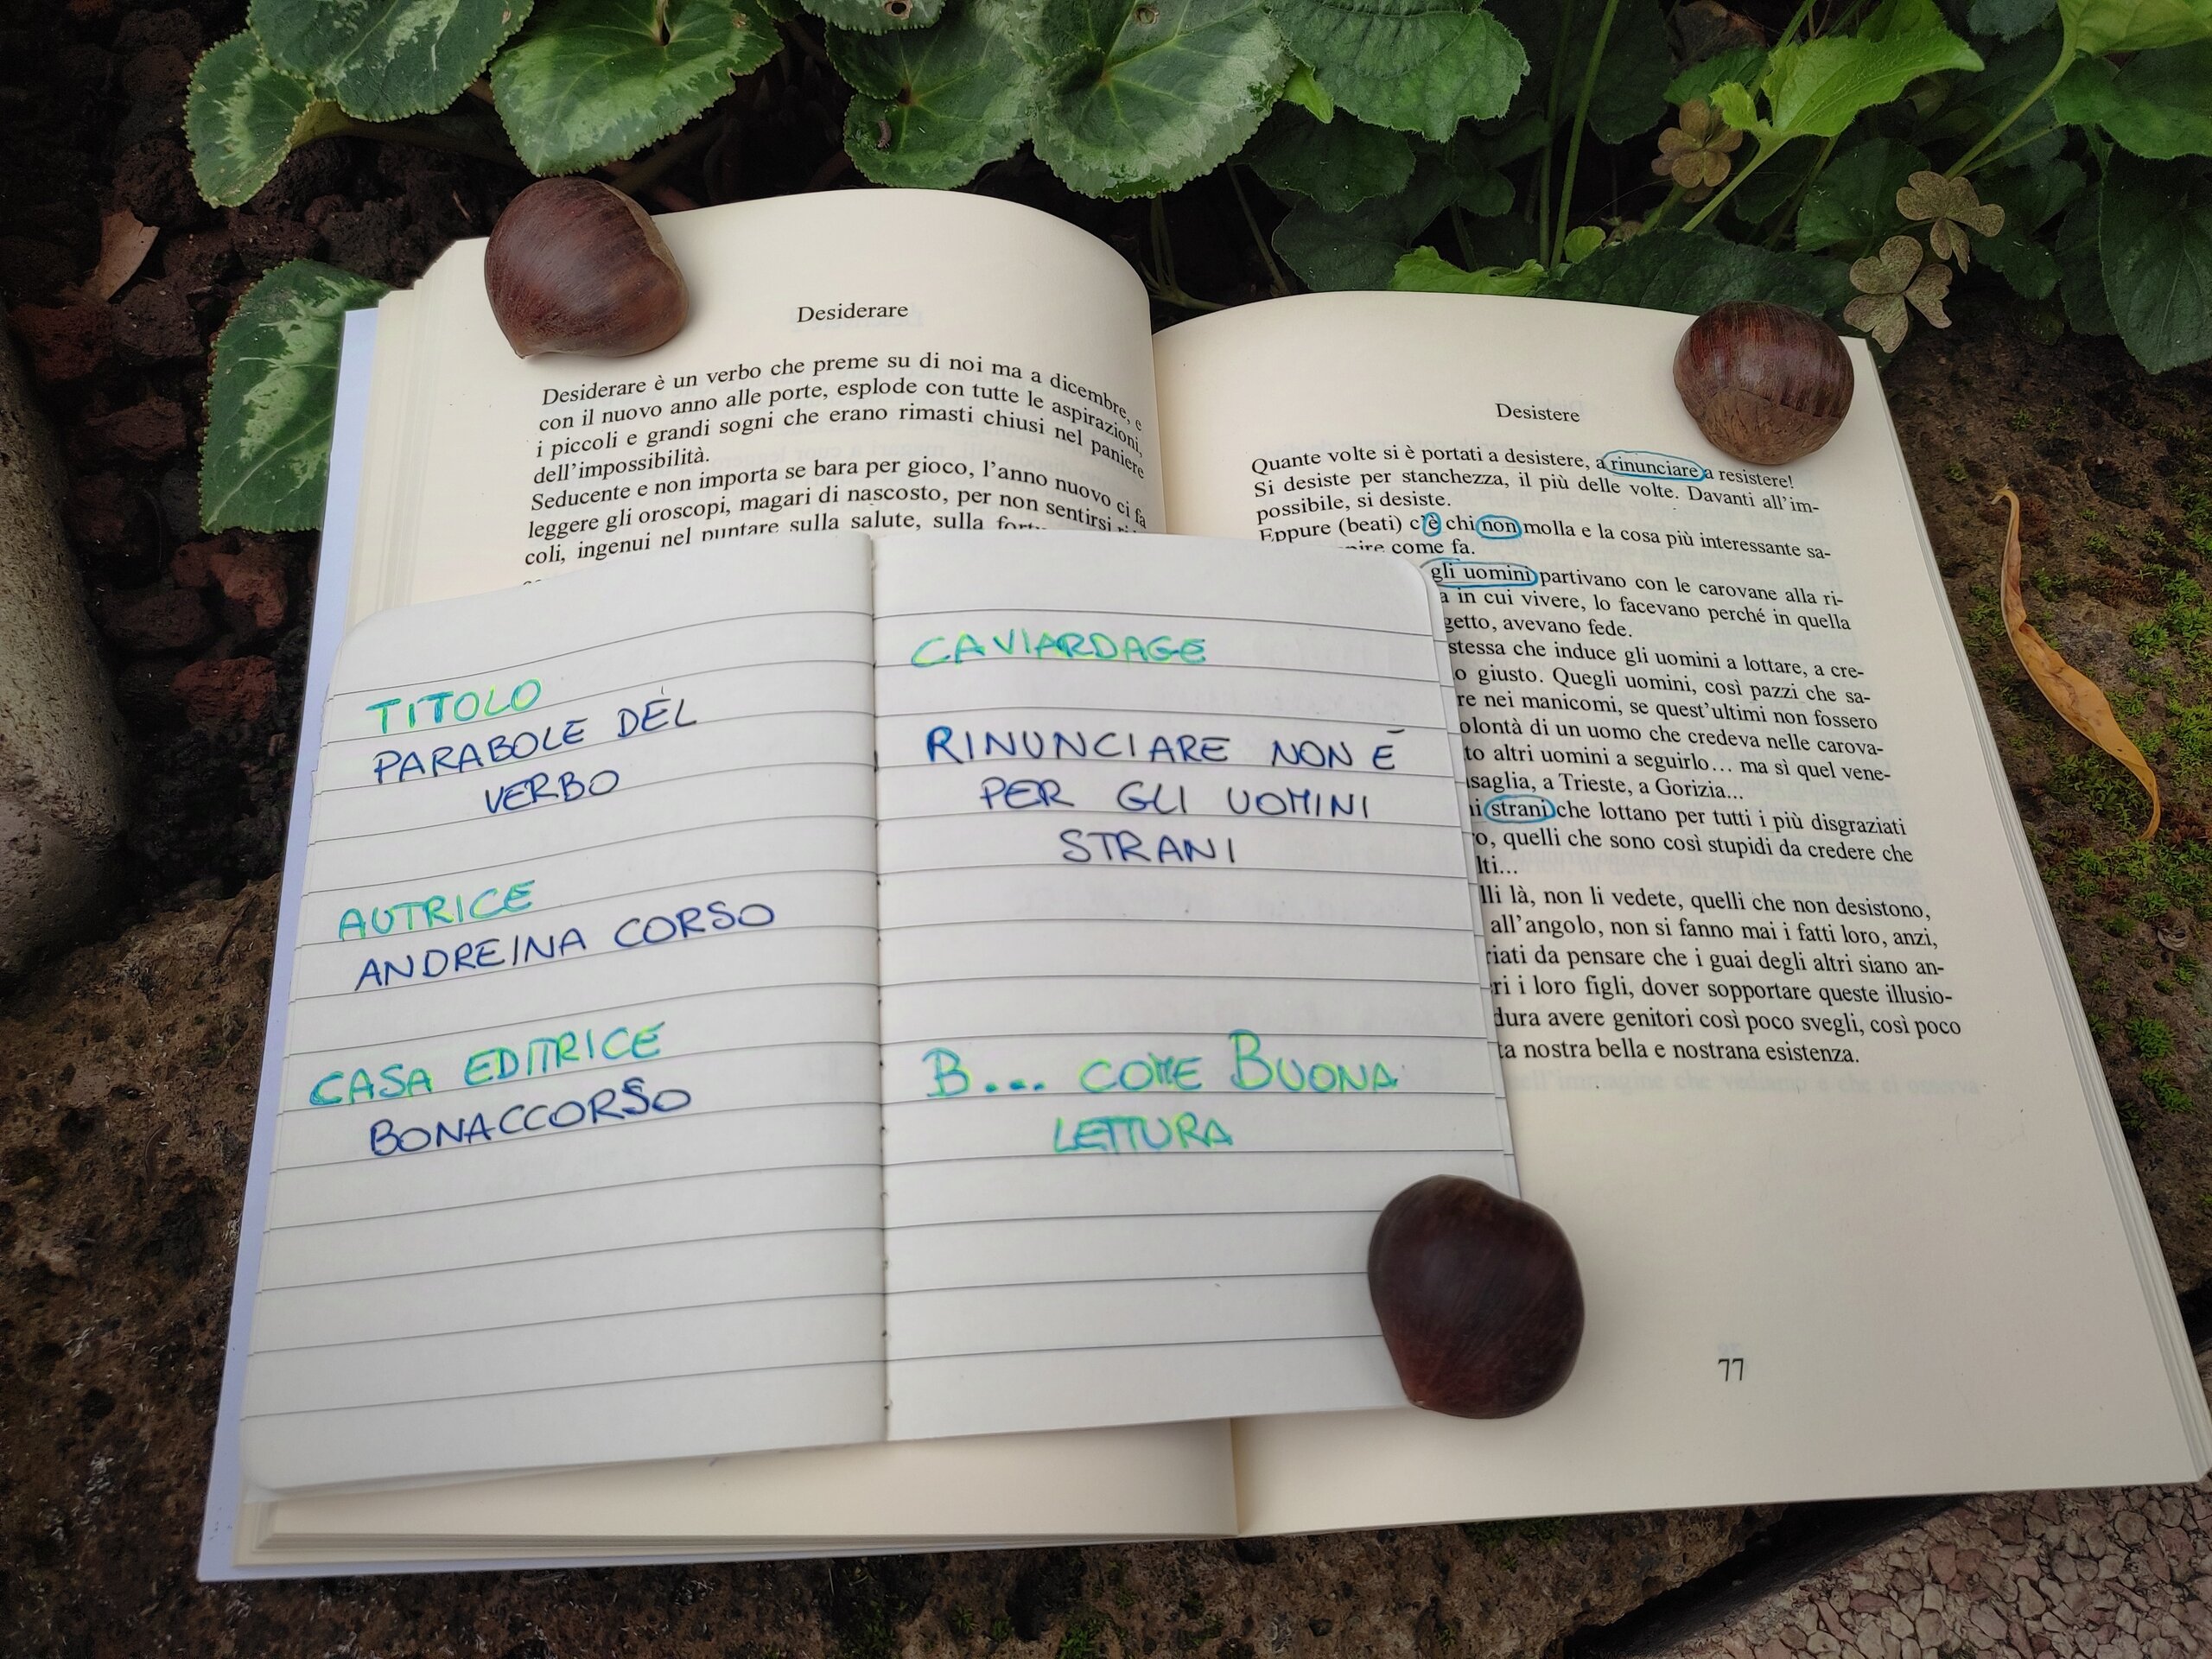 Desiderare
Desiderare è un verbo che preme su di noi ma a dicembre, e
con il nuovo anno alle porte, esplode con tutte le aspirazioni,
i piccoli e grandi sogni che erano rimasti chiusi nel paniere
dell'impossibilità.
Seducente e non importa se bara per gioco, l'anno nuovo ci fa
leggere gli oroscopi, magari di nascosto, per non sentirsi
coli, ingenui nel puntare sulla salute, sulla
Desistere
Quante volte si è portati a desistere, a rinunciare a resistere!
Si desiste per stanchezza, il più delle volte. Davanti all'im-
possibile, si desiste.
Eppure (beati) c'è chi non molla e la cosa più interessante sa-
come fa.
gli uomini partivano con le carovane alla ri-
a in cui vivere, lo facevano perché in quella
getto, avevano fede.
stessa che induce gli uomini a lottare, a cre-
o giusto. Quegli uomini, così pazzi che sa-
re nei manicomi, se quest'ultimi non fossero
olontà di un uomo che credeva nelle carova-
to altri uomini a seguirlo... ma sì quel vene-
saglia, a Trieste, a Gorizia...
ni strani che lottano per tutti i più disgraziati
o, quelli che sono così stupidi da credere che
lti...
lli là, non li vedete, quelli che non desistono,
all'angolo, non si fanno mai i fatti loro, anzi,
riati da pensare che i guai degli altri siano an-
ri i loro figli, dover sopportare queste illusio-
dura avere genitori così poco svegli, così poco
ta nostra bella e nostrana esistenza.
77
TITOLO
PARABOLE DEL
VERBO
AUTRICE
ANDREINA CORSO
CASA EDITRICE
BONACCORSO
CAVIARDAGE
RINUNCIARE NON È
PER GLI UOMINI
STRANI
B... COME BUONA
LETTURA